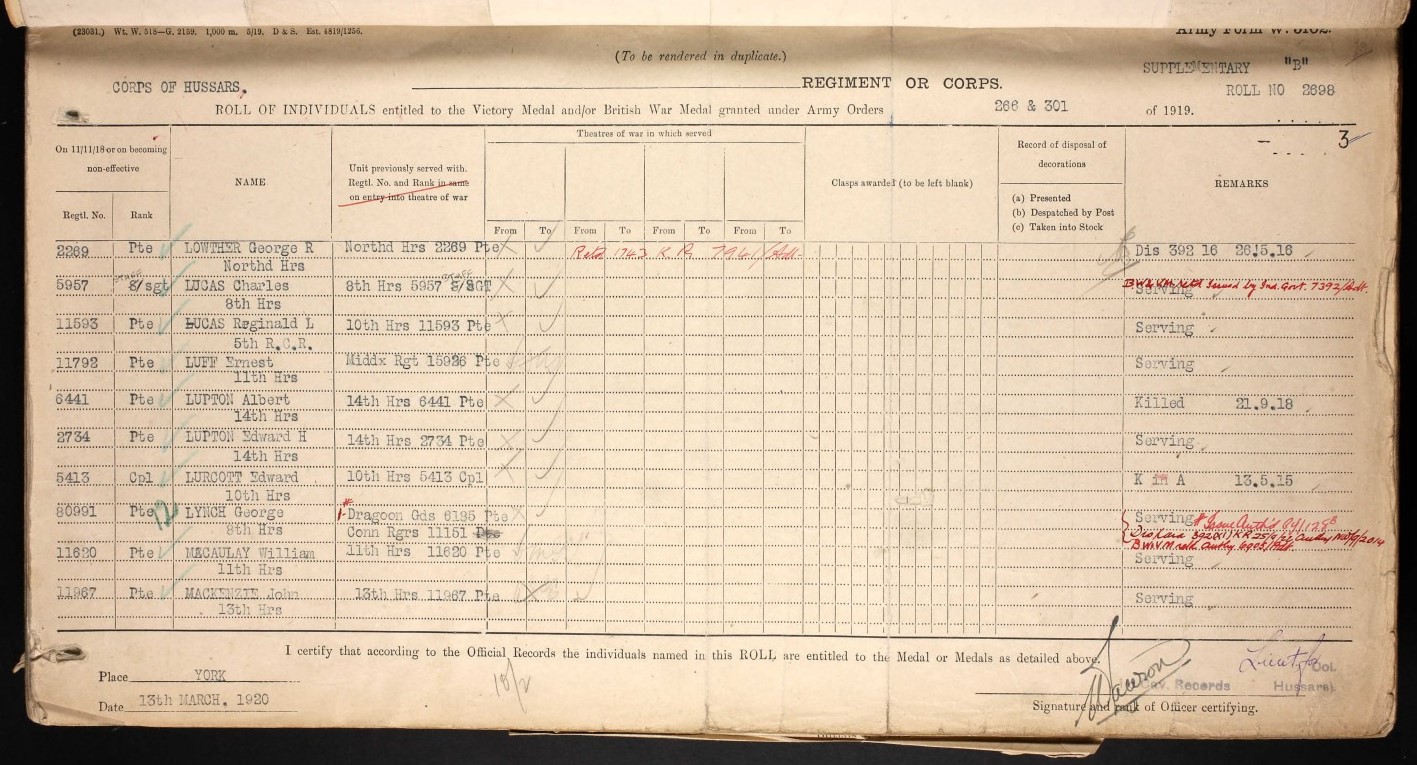 (23031.) Wt. W. 518—G. 2159. 1,000 m. 5/19. D & S. Est. 4819/1256.
Army Form W. 5102.
(To be rendered in duplicate.)
SUPPLEMENTARY "B"
CORPS OF HUSSARS. REGIMENT OR CORPS.
ROLL NO 2698
ROLL OF INDIVIDUALS entitled to the Victory Medal and/or British War Medal granted under Army Orders 266 & 301 of 1919.
3
On 11/11/18 or on becoming non-effective
Regtl. No. Rank
NAME
Unit previously served with.
Regtl. No. and Rank in same
on entry into theatre of war
Theatres of war in which served
From To From To From To From To
Clasps awarded (to be left blank)
Record of disposal of
decorations
(a) Presented
(b) Despatched by Post
(c) Taken into Stock
REMARKS
2269 Pte LOWTHER George R Northd Hrs 2269 Pte Retd 1743 K R 7961/Adt. Dis 392 16 26.5.16
Northd Hrs
5957 STAFF S/sgt LUCAS Charles 8th Hrs 5957 STAFF S/SGT Serving BW&VM retd Issued by Ind. Govt. 7392/Adt.
8th Hrs
11593 Pte LUCAS Reginald L 10th Hrs 11593 Pte Serving
5th R.C.R.
11792 Pte LUFF Ernest Middx Rgt 15926 Pte Serving
11th Hrs
6441 Pte LUPTON Albert 14th Hrs 6441 Pte Killed 21.9.18
14th Hrs
2734 Pte LUPTON Edward H 14th Hrs 2734 Pte Serving
14th Hrs
5413 Cpl LURCOTT Edward 10th Hrs 5413 Cpl K in A 13.5.15
10th Hrs
80991 Pte LYNCH George Dragoon Gds 6195 Pte Serving
8th Hrs Conn Rgrs 11151
11620 Pte MACAULAY William 11th Hrs 11620 Pte Serving
11th Hrs
11967 Pte MACKENZIE John 13th Hrs 11967 Pte Serving
13th Hrs
I certify that according to the Official Records the individuals named in this ROLL are entitled to the Medal or Medals as detailed above.
Place YORK
Date 13th MARCH, 1920
Lieut Col.
Cav. Records Hussars.
Signature and rank of Officer certifying.